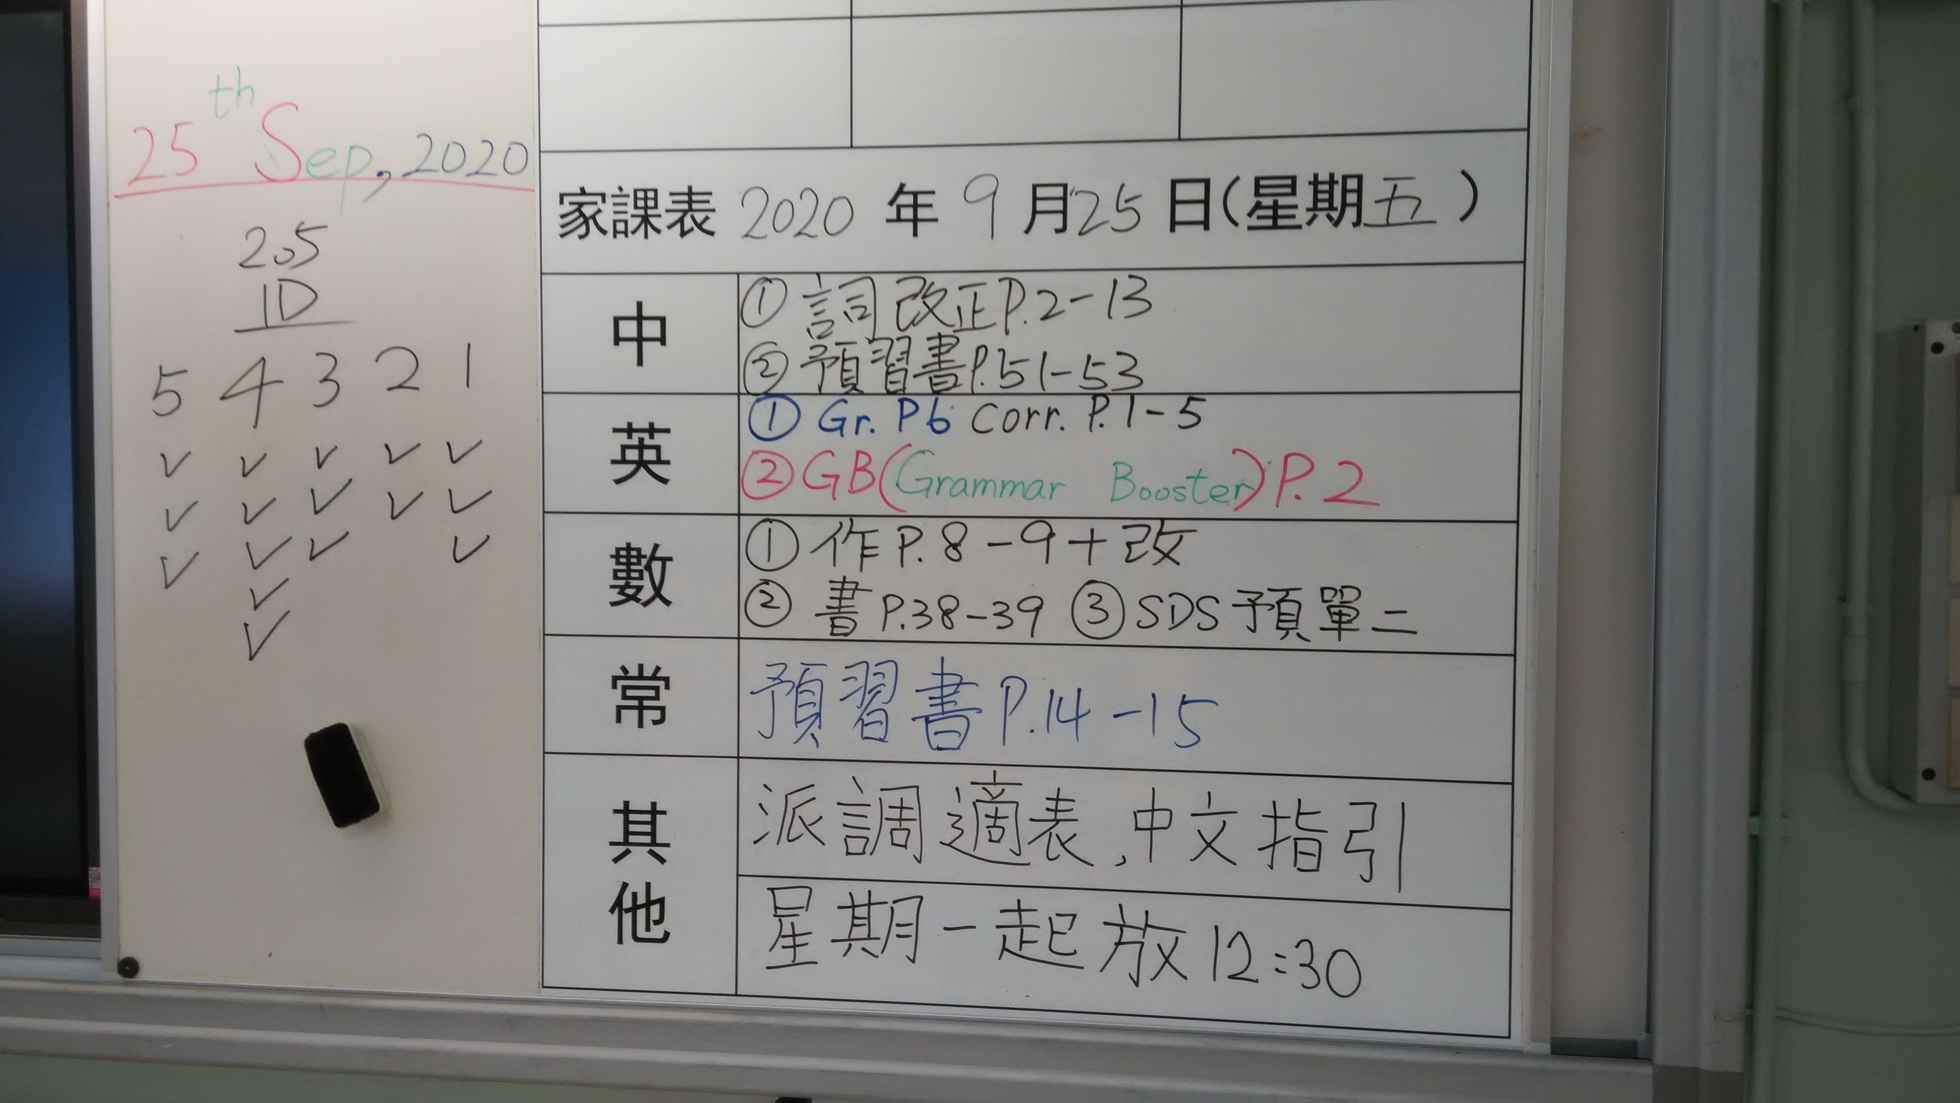 25th Sep, 2020
205
1D
5 4 3 2 1
家課表 2020 年 9 月 25 日(星期五)
中
① 詞改正P.2-13
② 預習書P.51-53
英
① Gr. P6 Corr. P.1-5
② GB(Grammar Booster)P.2
數
① 作P.8-9+改
② 書P.38-39 ③ SDS預單二
常
預習書P.14-15
其他
派調適表,中文指引
星期一起放12:30